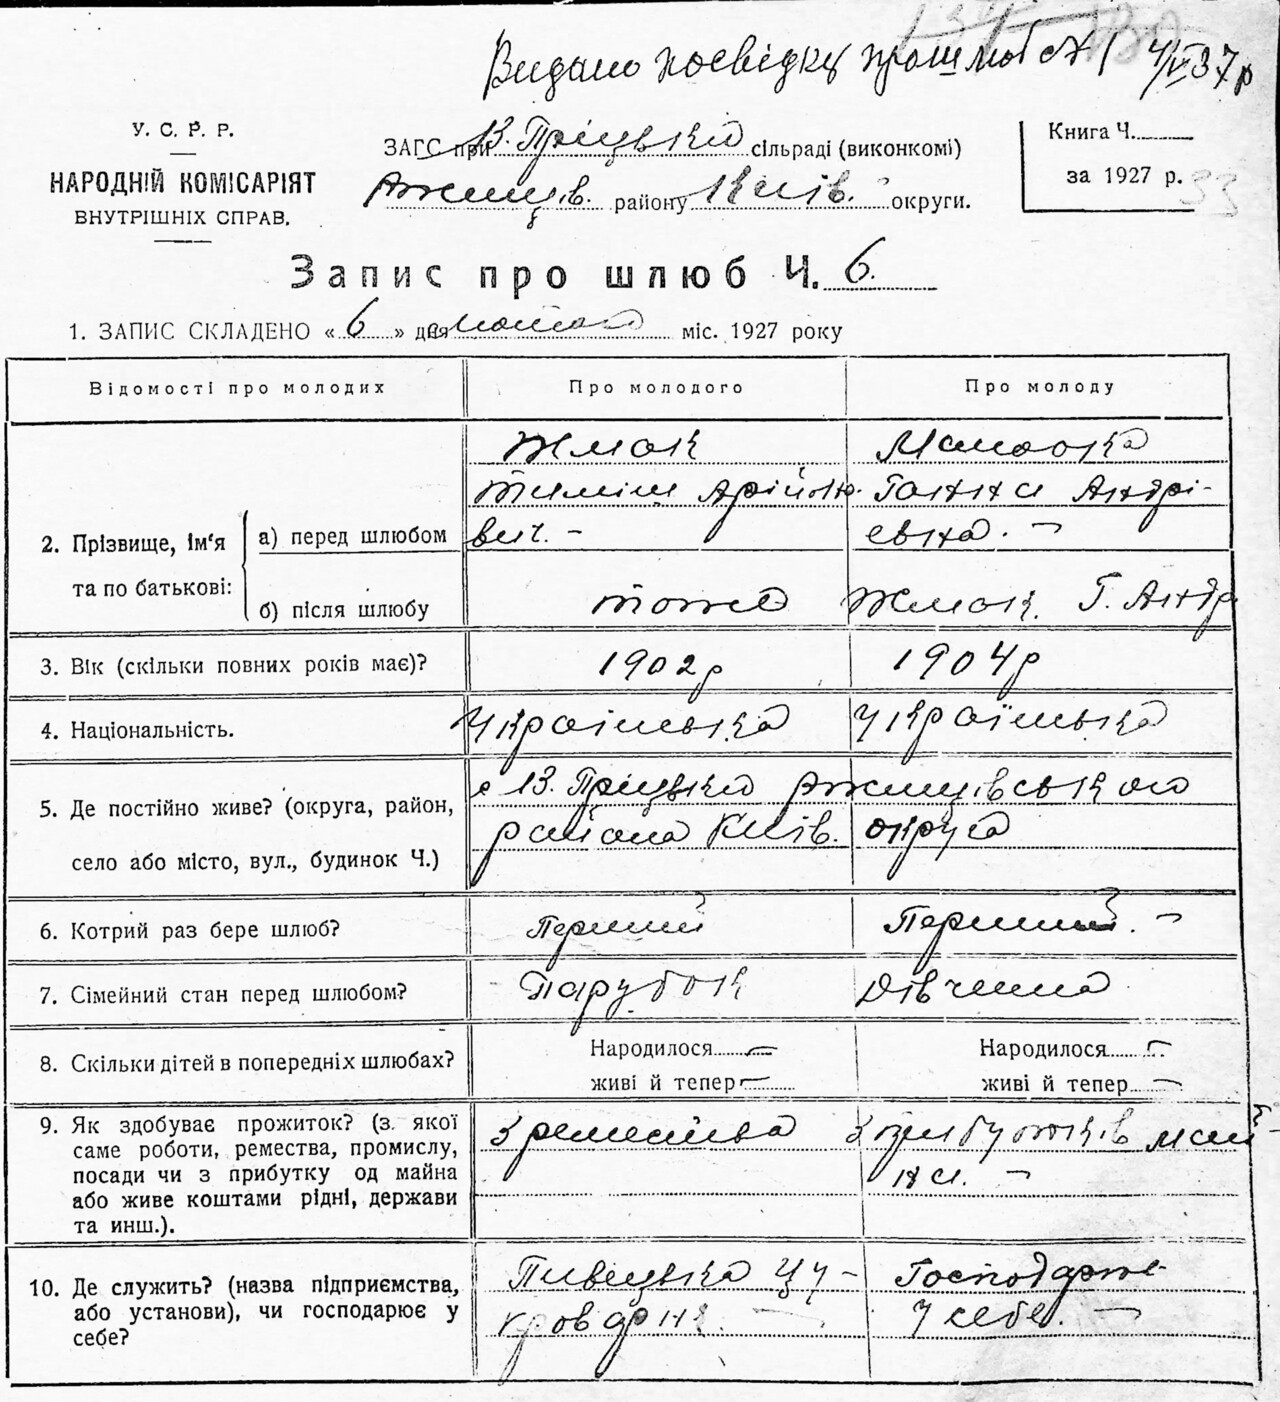 Видано посвідку про шлюб № 1 4/VI 37 р
У. С. Р. Р.
НАРОДНІЙ КОМІСАРІЯТ
ВНУТРІШНІХ СПРАВ.
ЗАГС при В. Пріцька сільраді (виконкомі)
Ржищів. району Київ. округи.
Книга Ч.
за 1927 р.
33
Запис про шлюб Ч. 6.
1. ЗАПИС СКЛАДЕНО « 6 » дня міс. 1927 року
Відомості про молодих Про молодого Про молоду
2. Прізвище, ім'я та по батькові:
а) перед шлюбом
Жмак
Тиміш
вич. -
Ганна Андрі-
евна. -
б) після шлюбу
тоже
Жмак. Г. Андр
3. Вік (скільки повних років має)? 1902р 1904р
4. Національність. Українська Українська
5. Де постійно живе? (округа, район,
село або місто, вул., будинок Ч.)
с В. Пріцька Ржищівського
района Київ. округа
6. Котрий раз бере шлюб? Перший Перший. -
7. Сімейний стан перед шлюбом? Парубок Дівчина
8. Скільки дітей в попередніх шлюбах?
Народилося — Народилося —
живі й тепер — живі й тепер —
9. Як здобуває прожиток? (з якої
саме роботи, ремества, промислу,
посади чи з прибутку од майна
або живе коштами рідні, держави
та инш.).
З ремества
З прибутків май-
на. -
10. Де служить? (назва підприємства,
або установи), чи господарює у
себе?
Пивецька цу-
кроварня
Господарює
у себе. -